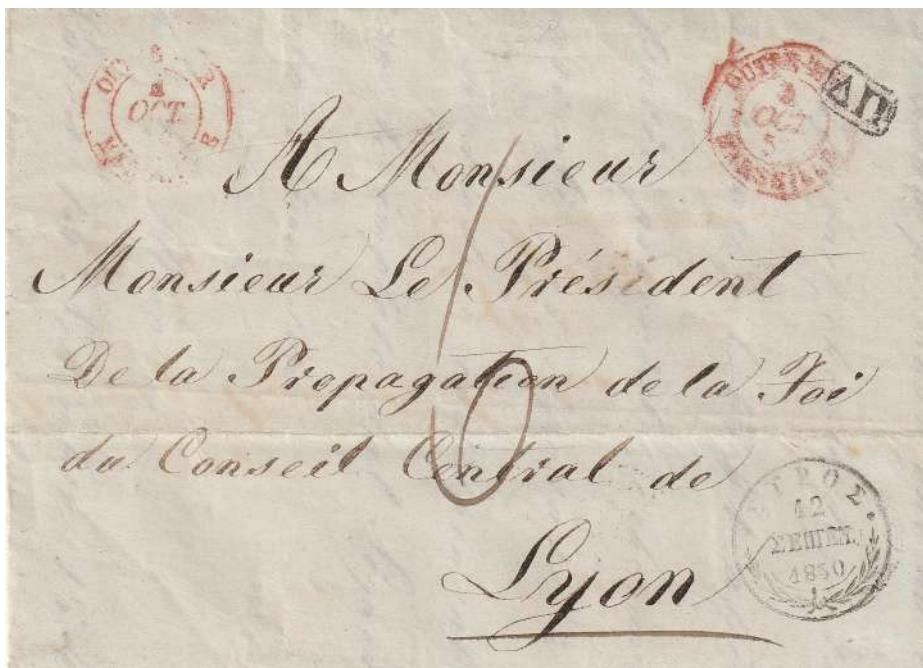 OCT.
OUTRE
OCT
MARSEILLE
ΔΠ
A Monsieur
Monsieur Le Président
De la Propagation de la Foi
du Conseil Central de
Lyon
6
ΣΥΡΟΣ.
12
ΣΕΠΤΕΜ.
1850